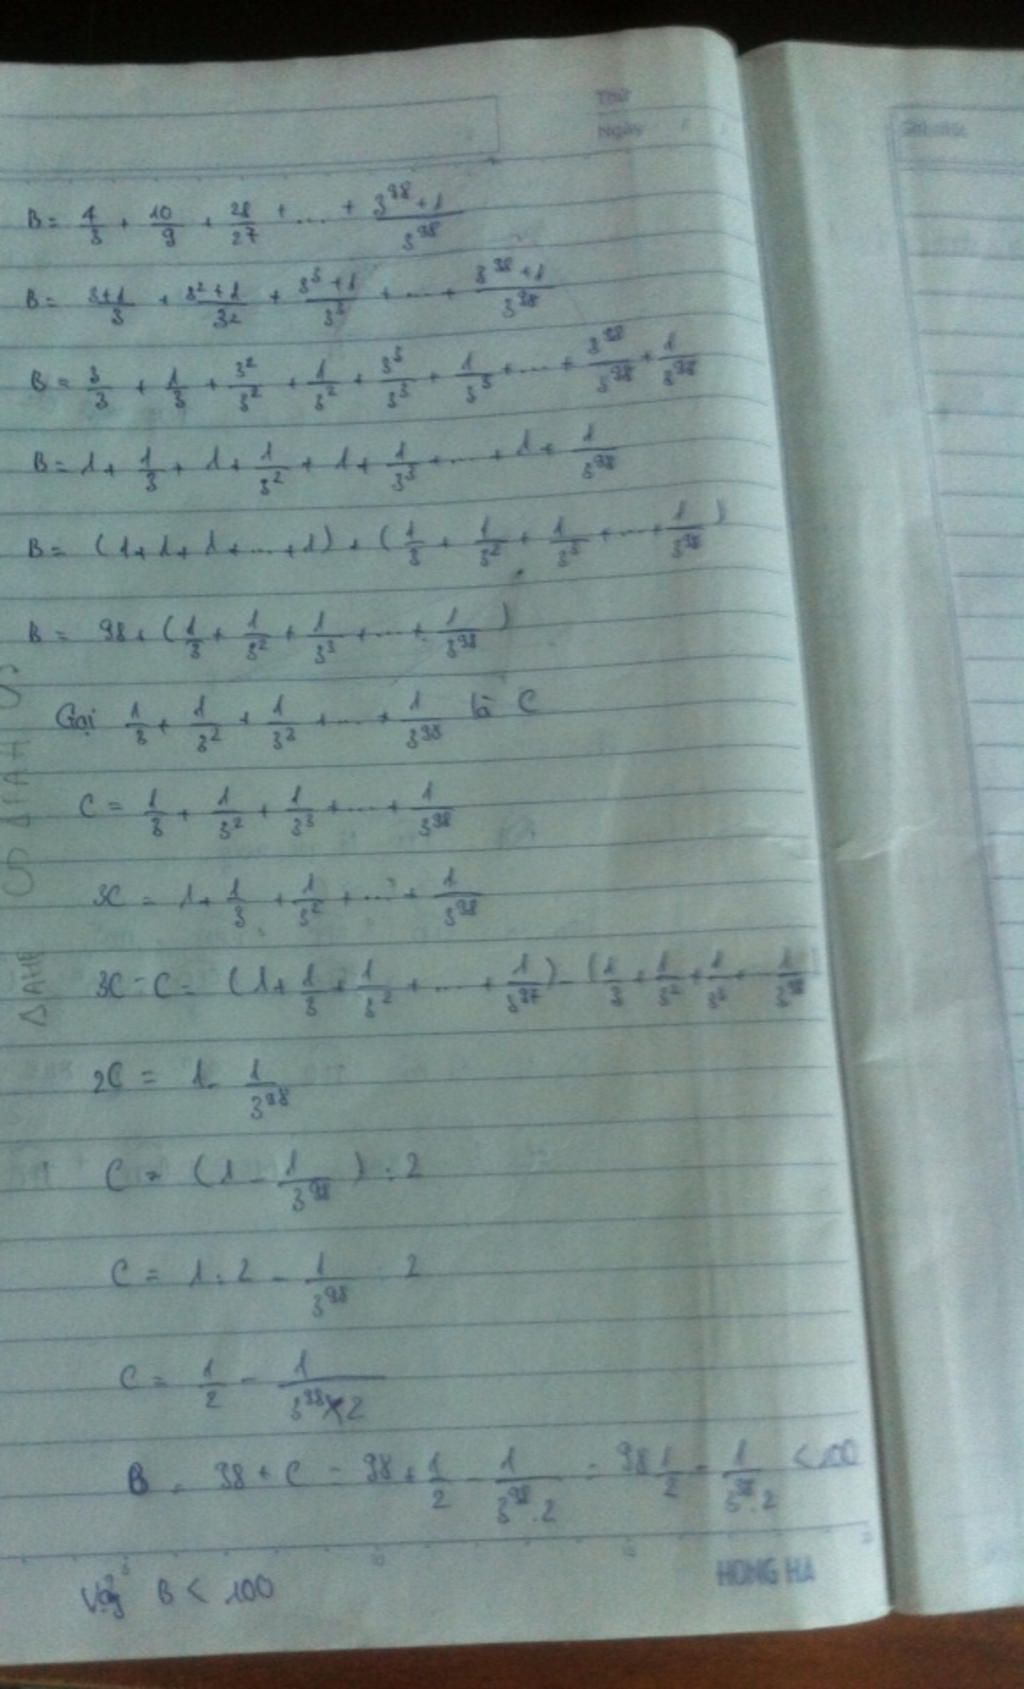 Thứ
Ngày
B = 4/3 + 10/9 + 28/27 + .... + (3^98 + 1)/3^98
B = (3+1)/3 + (3^2 + 1)/3^2 + (3^3 + 1)/3^3 + .... + (3^98 + 1)/3^98
B = 3/3 + 1/3 + 3^2/3^2 + 1/3^2 + 3^3/3^3 + 1/3^3 + .... + 3^98/3^98 + 1/3^98
B = 1 + 1/3 + 1 + 1/3^2 + 1 + 1/3^3 + .... + 1 + 1/3^98
B = (1 + 1 + 1 + .... + 1) + (1/3 + 1/3^2 + 1/3^3 + .... + 1/3^98)
B = 98 + (1/3 + 1/3^2 + 1/3^3 + .... + 1/3^98)
Gọi 1/3 + 1/3^2 + 1/3^3 + .... + 1/3^98 là C
C = 1/3 + 1/3^2 + 1/3^3 + .... + 1/3^98
3C = 1 + 1/3 + 1/3^2 + .... + 1/3^98
3C - C = (1 + 1/3 + 1/3^2 + .... + 1/3^97) - (1/3 + 1/3^2 + 1/3^3 + ... 1/3^98)
2C = 1 - 1/3^98
C = (1 - 1/3^98) : 2
C = 1 : 2 - 1/3^98 : 2
C = 1/2 - 1/(3^98 × 2)
B = 98 + C = 98 + 1/2 - 1/(3^98 . 2) = 98 1/2 - 1/(3^98 . 2) < 100
HONG HA
Vậy B < 100